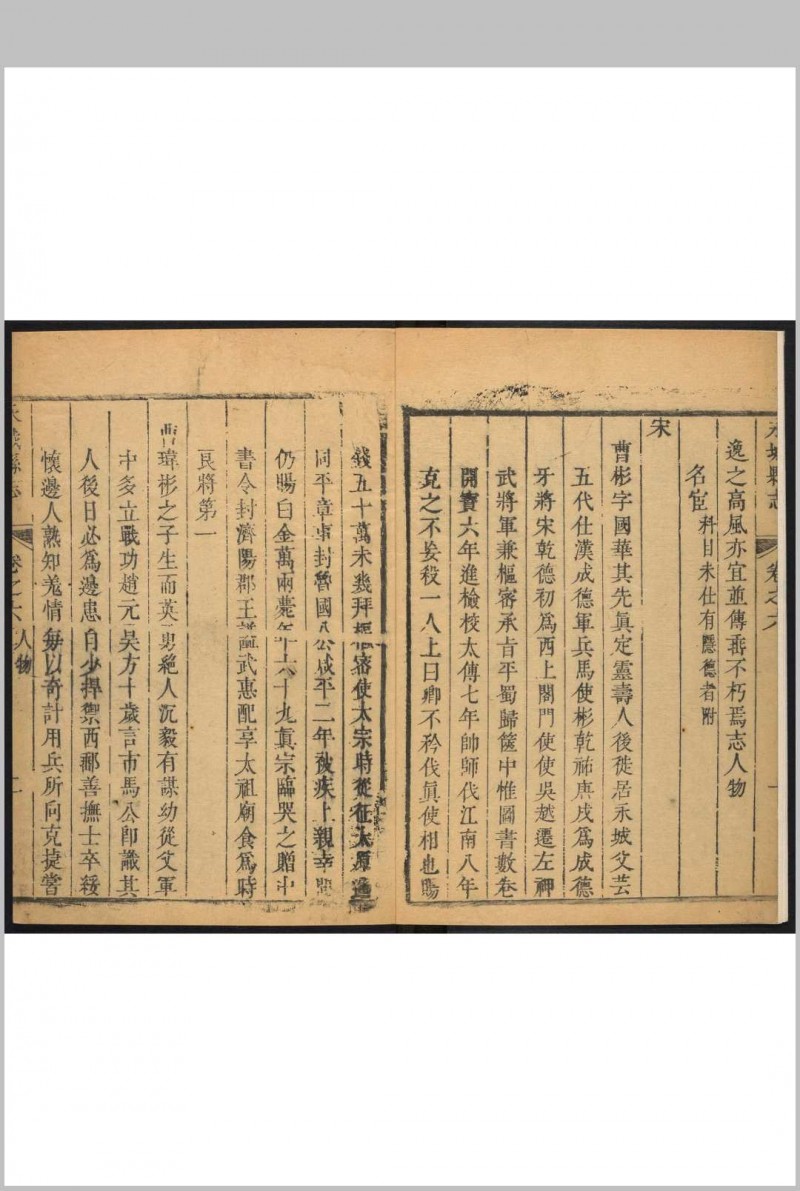 永城縣志 卷之六 一
逸之高風亦宜並傳乖不朽焉志人物
名宦 科目未仕有隱德者附
宋
曹彬字國華其先眞定靈壽人後徙居永城父芸
五代仕漢成德軍兵馬使彬乾祐庚戌爲成德
牙將宋乾德初爲西上閤門使使吳越遷左神
武將軍兼樞密承旨平蜀歸篋中惟圖書數卷
開寶六年進檢校太傅七年帥師伐江南八年
克之不妄殺一人上曰卿不矜伐眞使相也賜
錢五十萬未幾拜樞密使太宗時從征太原進
同平章事封魯國公咸平二年被疾上親幸問
仍賜白金萬兩薨年六十九眞宗臨哭之贈中
書令封濟陽郡王諡武惠配享太祖廟食爲時
良將第一
曹瑋彬之子生而英勇絕人沉毅有謀幼從父軍
中多立戰功趙元昊方十歲言市馬公卽識其
人後日必爲邊患自少捍禦西鄙善撫士卒綏
懷邊人熟知羗情每以奇計用兵所向克捷嘗
永城縣志 卷之六 人物 二